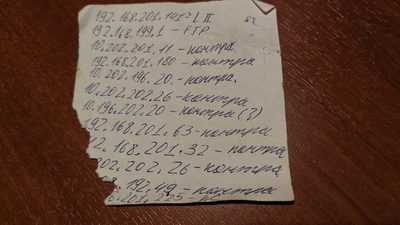 192.168.201.141 - L II
192.168.199.1 - FTP
10.202.201.11 - контра
192.168.201.180 - контра
10.202.196.20. - контра.
10.202.202.26 - контра
10.196.202.20 - контра (3)
192.168.201.63 - контра
12.168.201.32 - контра
202.202.26 - контра
192.49 - контра